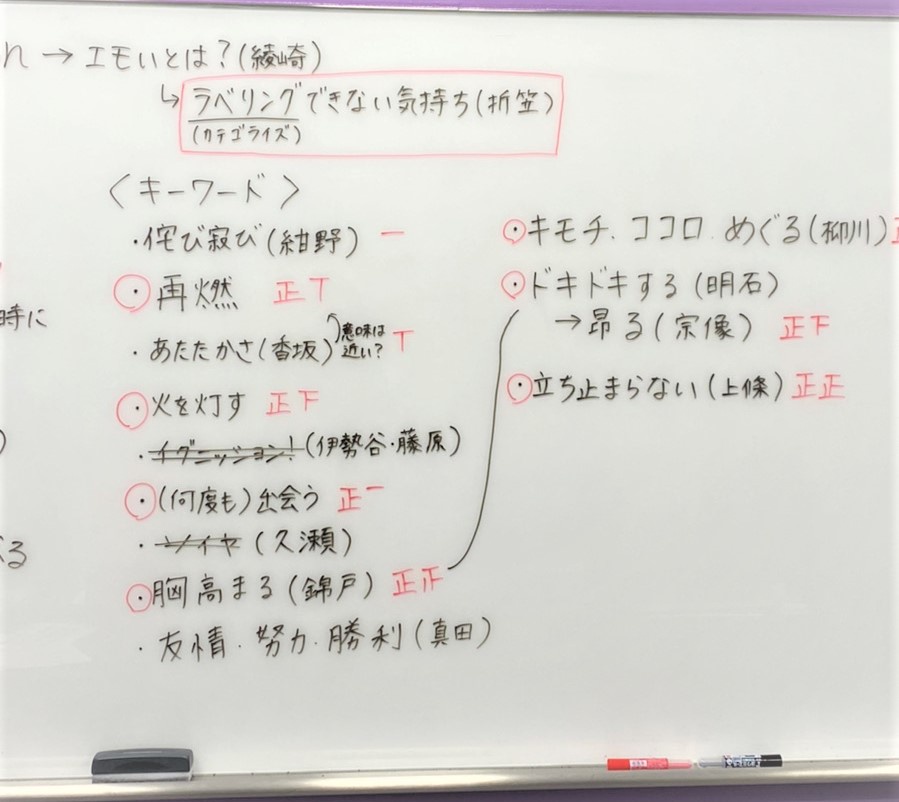 れ → エモいとは?(綾崎)
↳ ラベリングできない気持ち(折笠)
(カテゴライズ)
〈キーワード〉
・侘び寂び(紺野) 一
・再燃 正丅
時に
・あたたかさ(香坂) 意味は近い? 丅
・火を灯す 正下
・イグニッション!(伊勢谷・藤原)
・(何度も)出会う 正一
・ソイヤ(久瀬)
・胸高まる(錦戸) 正正
・友情・努力・勝利(真田)
・キモチ、ココロ、めぐる(柳川)
・ドキドキする(明石)
→昂る(宗像) 正下
・立ち止まらない(上條) 正正